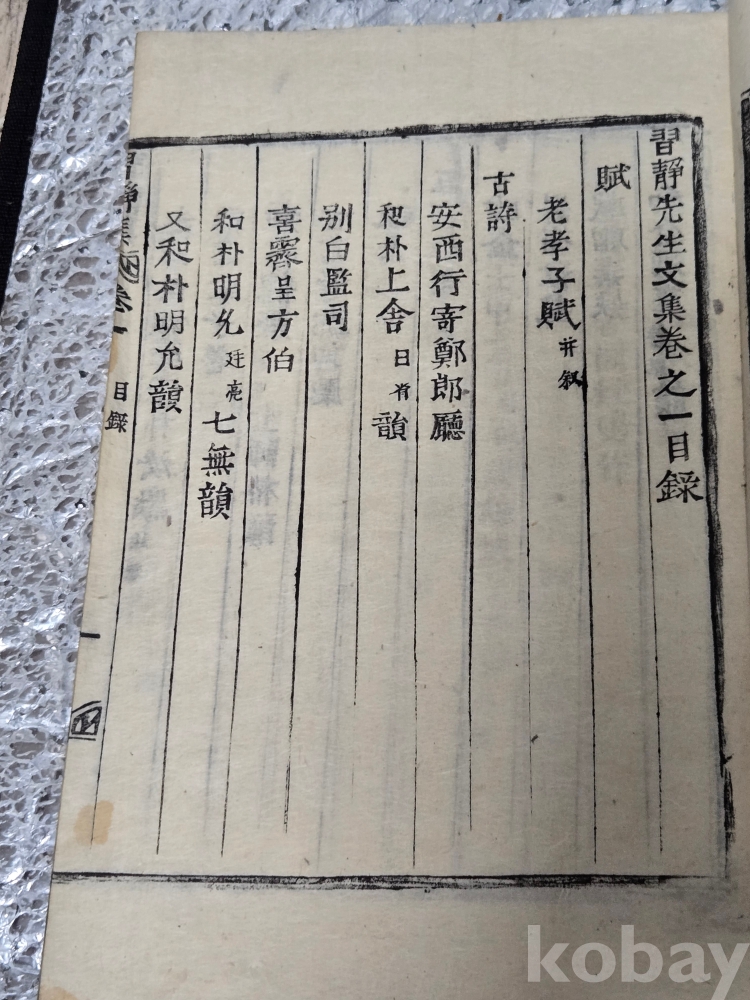 習靜先生文集卷之一目錄
賦
老孝子賦 并叙
古詩
安西行寄鄭郎廳
和朴上舍 日省 韻
別白監司
喜霽呈方伯
和朴明允 廷亮 七無韻
又和朴明允韻
習靜集 卷一 目錄 一
kobay